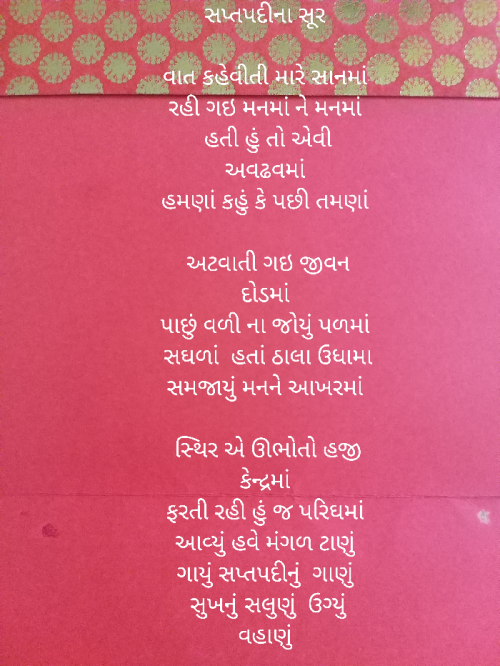 સપ્તપદીના સૂર
વાત કહેવીતી મારે સાનમાં
રહી ગઇ મનમાં ને મનમાં
હતી હું તો એવી
અવઢવમાં
હમણાં કહું કે પછી તમણાં
અટવાતી ગઇ જીવન
દોડમાં
પાછું વળી ના જોયું પળમાં
સઘળાં હતાં ઠાલા ઉધામા
સમજાયું મનને આખરમાં
સ્થિર એ ઊભોતો હજી
કેન્દ્રમાં
ફરતી રહી હું જ પરિઘમાં
આવ્યું હવે મંગળ ટાણું
ગાયું સપ્તપદીનું ગાણું
સુખનું સલુણું ઉગ્યું
વહાણું